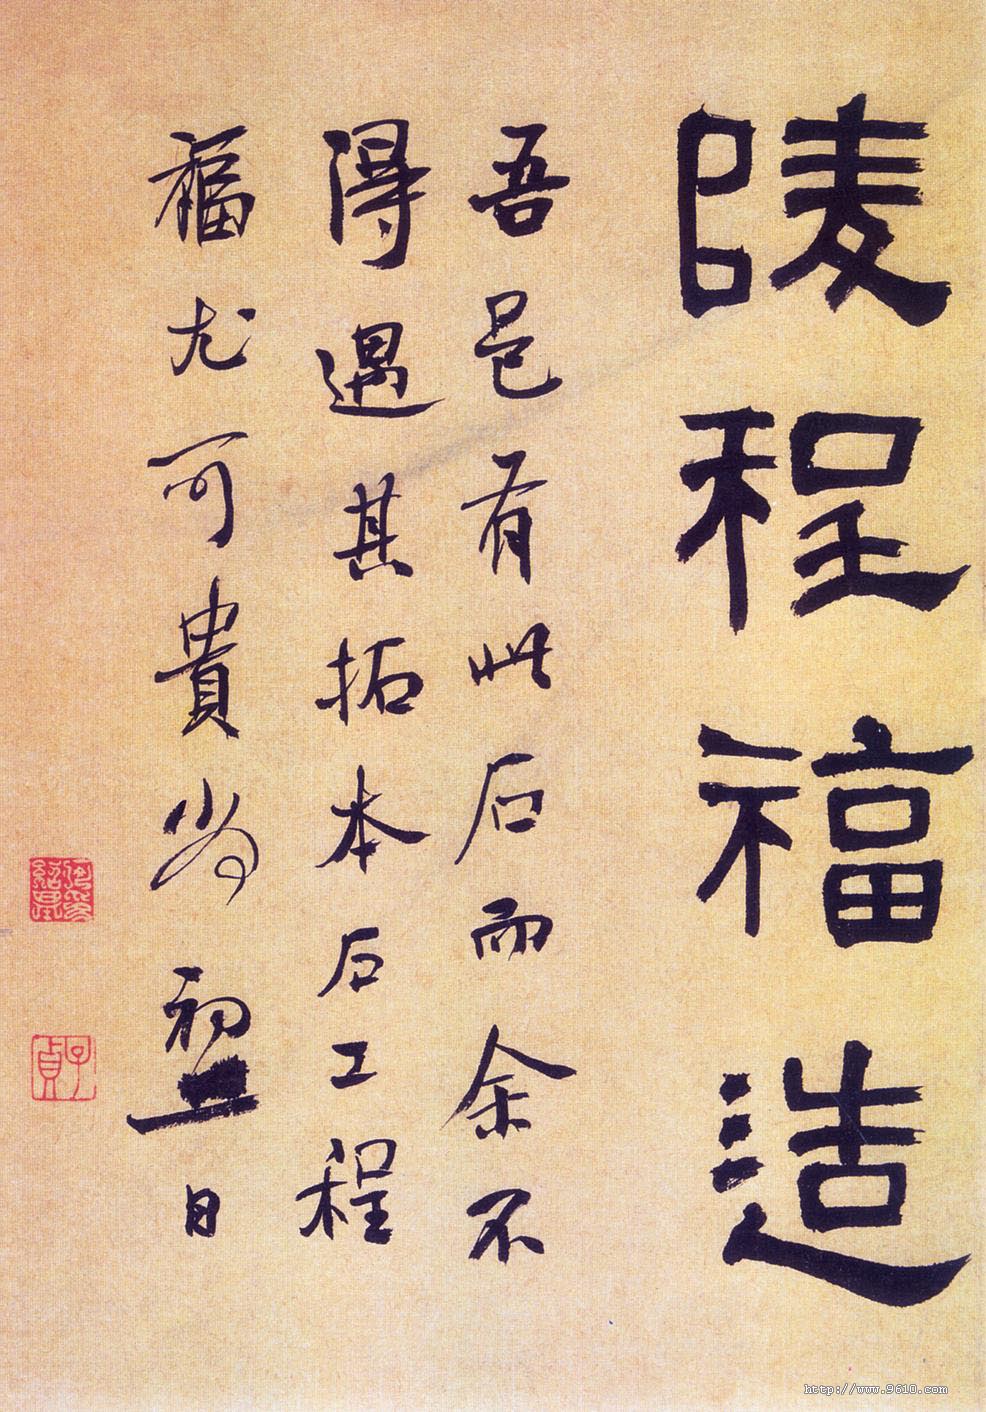 陵程福造
吾邑有此石而余不
得遇其拓本石工程
福尤可貴尚
初
日
子貞
http://www.9610.com